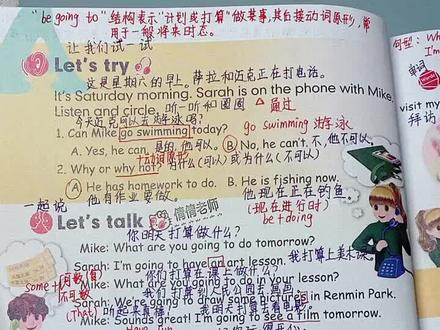 "be going to"结构表示"计划或打算"做某事,其后接动词原形,常
用于一般将来时态。
让我们试一试
Let's try
这是星期六的早上。萨拉和迈克正在打电话。
It's Saturday morning. Sarah is on the phone with Mike.
Listen and circle. 听一听和圈圈 △ 通过
今天迈克可以去游泳吗?
1. Can Mike go swimming today? go swimming 游泳
A. Yes, he can. 是的,他可以。 B. No, he can't. 不,他不可以。
+动词原形
2. Why or why not? 为什么(可以)或为什么(不可以)
A. He has homework to do. B. He is fishing now.
他有作业要做。 他现在正在钓鱼。
一起说
(现在进行时)
Let's talk 倩倩老师 be+doing
你明天打算做什么?
Mike: What are you going to do tomorrow?
Sarah: I'm going to have an art lesson. 我打算上美术课。
你们打算在课上做什么?
Mike: What are you going to do in your lesson?
some+可数(复)
不可数
Sarah: We're going to draw some pictures in Renmin Park.
(That) 听起来真棒! 我明天打算去看电影
Mike: Sounds great! I'm going to see a film tomorrow.
Have fun
句型: Wh
I'm
单词
visit my
拜访